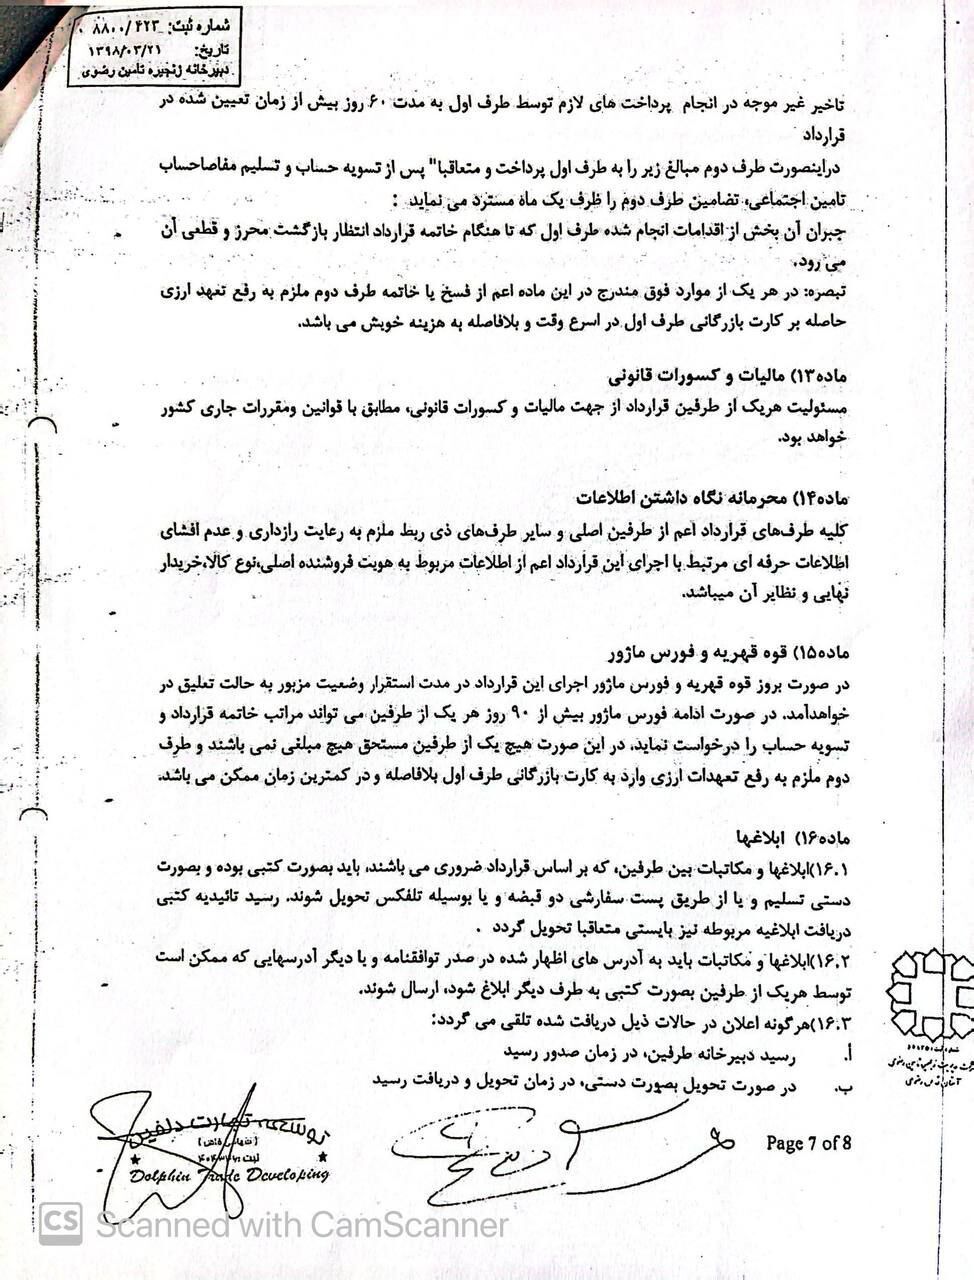 شماره ثبت: ۸۸۰۰/۴۲۳
تاریخ: ۱۳۹۸/۰۳/۲۱
دبیرخانه زنجیره تامین رضوی
تاخیر غیر موجه در انجام پرداخت های لازم توسط طرف اول به مدت ۶۰ روز بیش از زمان تعیین شده در
قرارداد
دراینصورت طرف دوم مبالغ زیر را به طرف اول پرداخت و متعاقبا" پس از تسویه حساب و تسلیم مفاصاحساب
تامین اجتماعی، تضامین طرف دوم را ظرف یک ماه مسترد می نماید :
جبران آن بخش از اقدامات انجام شده طرف اول که تا هنگام خاتمه قرارداد انتظار بازگشت محرز و قطعی آن
می رود.
تبصره: در هر یک از موارد فوق مندرج در این ماده اعم از فسخ یا خاتمه طرف دوم ملزم به رفع تعهد ارزی
حاصله بر کارت بازرگانی طرف اول در اسرع وقت و بلافاصله به هزینه خویش می باشد.
ماده۱۳) مالیات و کسورات قانونی
مسئولیت هریک از طرفین قرارداد از جهت مالیات و کسورات قانونی، مطابق با قوانین ومقررات جاری کشور
خواهد بود.
ماده۱۴) محرمانه نگاه داشتن اطلاعات
کلیه طرف‌های قرارداد اعم از طرفین اصلی و سایر طرف‌های ذی ربط ملزم به رعایت رازداری و عدم افشای
اطلاعات حرفه ای مرتبط با اجرای این قرارداد اعم از اطلاعات مربوط به هویت فروشنده اصلی،نوع کالا،خریدار
نهایی و نظایر آن میباشد.
ماده۱۵) قوه قهریه و فورس ماژور
در صورت بروز قوه قهریه و فورس ماژور اجرای این قرارداد در مدت استقرار وضعیت مزبور به حالت تعلیق در
خواهدآمد. در صورت ادامه فورس ماژور بیش از ۹۰ روز هر یک از طرفین می تواند مراتب خاتمه قرارداد و
تسویه حساب را درخواست نماید، در این صورت هیچ یک از طرفین مستحق هیچ مبلغی نمی باشند و طرف
دوم ملزم به رفع تعهدات ارزی وارد به کارت بازرگانی طرف اول بلافاصله و در کمترین زمان ممکن می باشد.
ماده۱۶) ابلاغها
۱۶.۱)ابلاغها و مکاتبات بین طرفین، که بر اساس قرارداد ضروری می باشند، باید بصورت کتبی بوده و بصورت
دستی تسلیم و یا از طریق پست سفارشی دو قبضه و یا بوسیله تلفکس تحویل شوند. رسید تائیدیه کتبی
دریافت ابلاغیه مربوطه نیز بایستی متعاقبا تحویل گردد .
۱۶.۲)ابلاغها و مکاتبات باید به آدرس های اظهار شده در صدر توافقنامه و یا دیگر آدرسهایی که ممکن است
توسط هریک از طرفین بصورت کتبی به طرف دیگر ابلاغ شود، ارسال شوند.
۱۶.۳)هرگونه اعلان در حالات ذیل دریافت شده تلقی می گردد:
أ. رسید دبیرخانه طرفین، در زمان صدور رسید
ب. در صورت تحویل بصورت دستی، در زمان تحویل و دریافت رسید
Page 7 of 8
توسعه تجارت دلفین
Dolphin Trade Developing
CS Scanned with CamScanner